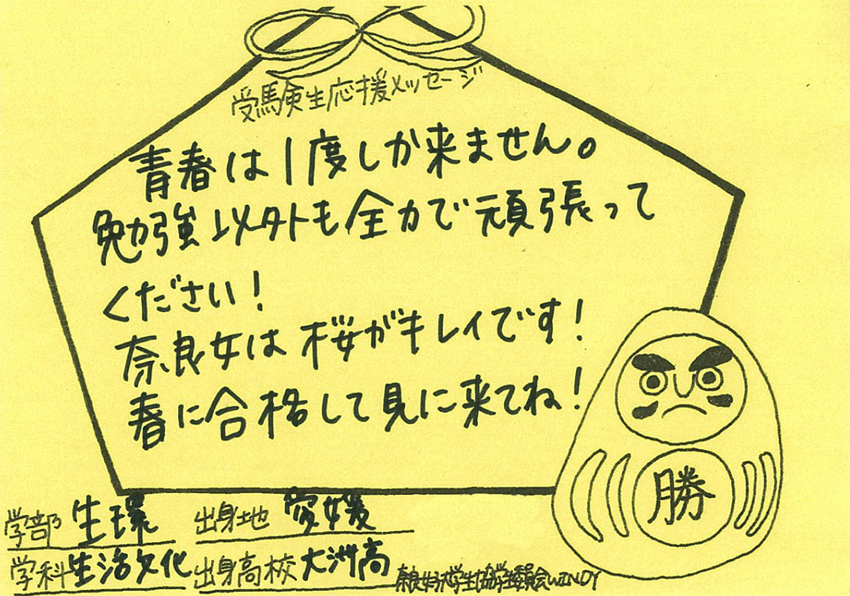 受験生応援メッセージ
青春は1度しか来ません。
勉強以外も全力で頑張って
ください!
奈良女は桜がキレイです!
春に合格して見に来てね!
勝
学部 生環 出身地 愛媛
学科 生活文化 出身高校 大洲高
奈良女子大学生協学生委員会WINDY